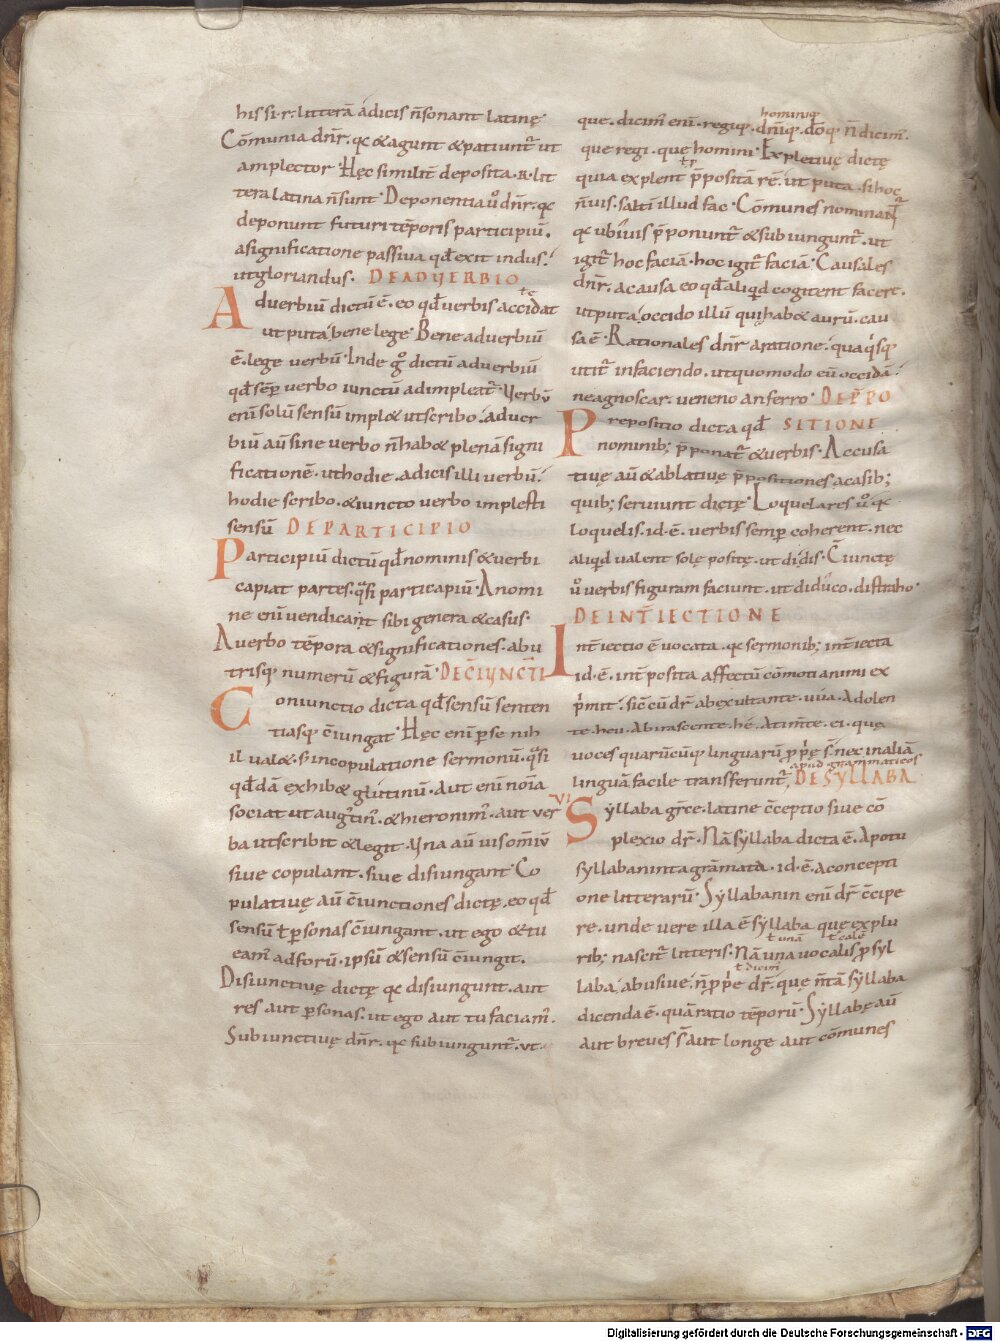 his si · r · litterā adicis n̄ sonant latinę
Cōmunia dn̄r · qc & agunt & patiuntr̄ ut
amplector · Hęc similit̄ deposita · R · lit
tera latina n̄ sunt · Deponentia u̅o dn̄r · qc
deponunt futuri tēporis participiū ·
a significatione passiva qd̄ exit in dus ·
ut gloriandus · DE ADVERBIO
Adverbiū dictū ē · eo qd̄ verbis accidat
ut puta bene lege · Bene adverbiū
ē · lege verbū · Inde g̊ dictū adverbiū
qd̄ semp̄ verbo iunctū adimpleatr̄ · Verbū
enī solū sensū impl& ut scribo · adver
biū aū sine verbo n̄ hab& plenā signi
ficationē · ut hodie · adicis illi verbū ·
hodie scribo · & iuncto verbo implesti
sensū DE PARTICIPIO
Participiū dictū qd̄ nominis & verbi
capiat partes · qͣsi particapiū · A nomi
ne enī vendicant sibi genera & casus ·
A verbo tēpora & significationes · ab u
trisq; numerū & figurā · DE C̄IUNCTI
Coniunctio dicta qd̄ sensū senten
tiasq; c̄iungat · Hęc enī p̄ se nih
il val& · s; in copulatione sermonū · qͣsi
qd̄dā exhib& glutinū · Aut enī noīa
sociat ut augꝰtinꝰ · & hieronimꝰ · aut ver
ba ut scribit & legit · Una aū vis om̄iū
sive copulant · sive disiungant · Co
pulativę aū c̄iunctiones dictę · eo qd̄
sensū ł p̄sonas c̄iungant · ut ego & tu
eamꝰ ad forū · ipsū & sensū c̄iungit ·
Disiunctivę dictę qc disiungunt · aut
res aut p̄sonas · ut ego aut tu faciamꝰ ·
Subiunctivę dn̄r · qc subiunguntr̄ · ut
hominiq;
que · dicimꝰ enī · regiq; · dn̄iq; · dōq; n̄ dicimꝰ ·
que regi · que homini · Expletivę dictę
quia explent p̄positā rē · ut puta · si hoc
n̄ vis · saltī illud fac · Cōmunes nominantr̄
qc ubivis p̄ponuntr̄ & subiunguntr̄ · ut
igitr̄ hoc faciā · hoc igitr̄ faciā · Causales
dn̄r · a causa eo qd̄ aliqd cogitent facere ·
ut puta occido illū qui hab& aurū · cau
sa ē · Rationales dn̄r a ratione · qua qͥsq;
utitr̄ in faciendo · ut quomodo eū occidā ·
ne agnoscar · veneno an ferro · DE P̄PO
Prepositio dicta qd̄ SITIONE
nominib; p̄ponatr̄ & verbis · Accusa
tivę aū & ablativę p̄positiones a casib;
quib; serviunt dictę · Loquelares u̅o qc
loquelis · id · ē · verbis semp̄ coherent · nec
aliqd valent solę positę · ut di · dis · C̄iunctę
u̅o verbis figuram faciunt · ut diduco · distraho ·
DE INT̄IECTIONE
Int̄iectio ē vocata · qc sermonib; int̄iecta
id · ē · int̄posita affectū cōmoti animi ex
p̄mit · sic̄ cū dr̄ ab exultante · uúa · A dolen
te · heu · Ab irascente · hé · A tim̄te · ei · quę
voces quarūcūq; linguarū p̄p̄ę s̄ · nec in aliā
apud grammaticos
linguā facile transferuntr̄, DE SYLLABA
VI
Syllaba gr̄ce · latine c̄ceptio sive cō
plexio dr̄ · Nā syllaba dicta ē · Apo tu
syllabanin ta gramata · id · ē · a concepti
one litterarū · Syllabanin enī dr̄ c̄cipe
re · unde vere illa ē syllaba que ex plu
rib; nascitr̄ litteris · Nā una vocalis p̄ syl
laba, abusive, n̄ p̄p̄e dr̄ · quę n̄ tā syllaba
dicenda ē · quā ratio tēporū · Syllabę aū
aut breves s̄ aut longe aut cōmunes
Digitalisierung gefördert durch die Deutsche Forschungsgemeinschaft - DFG